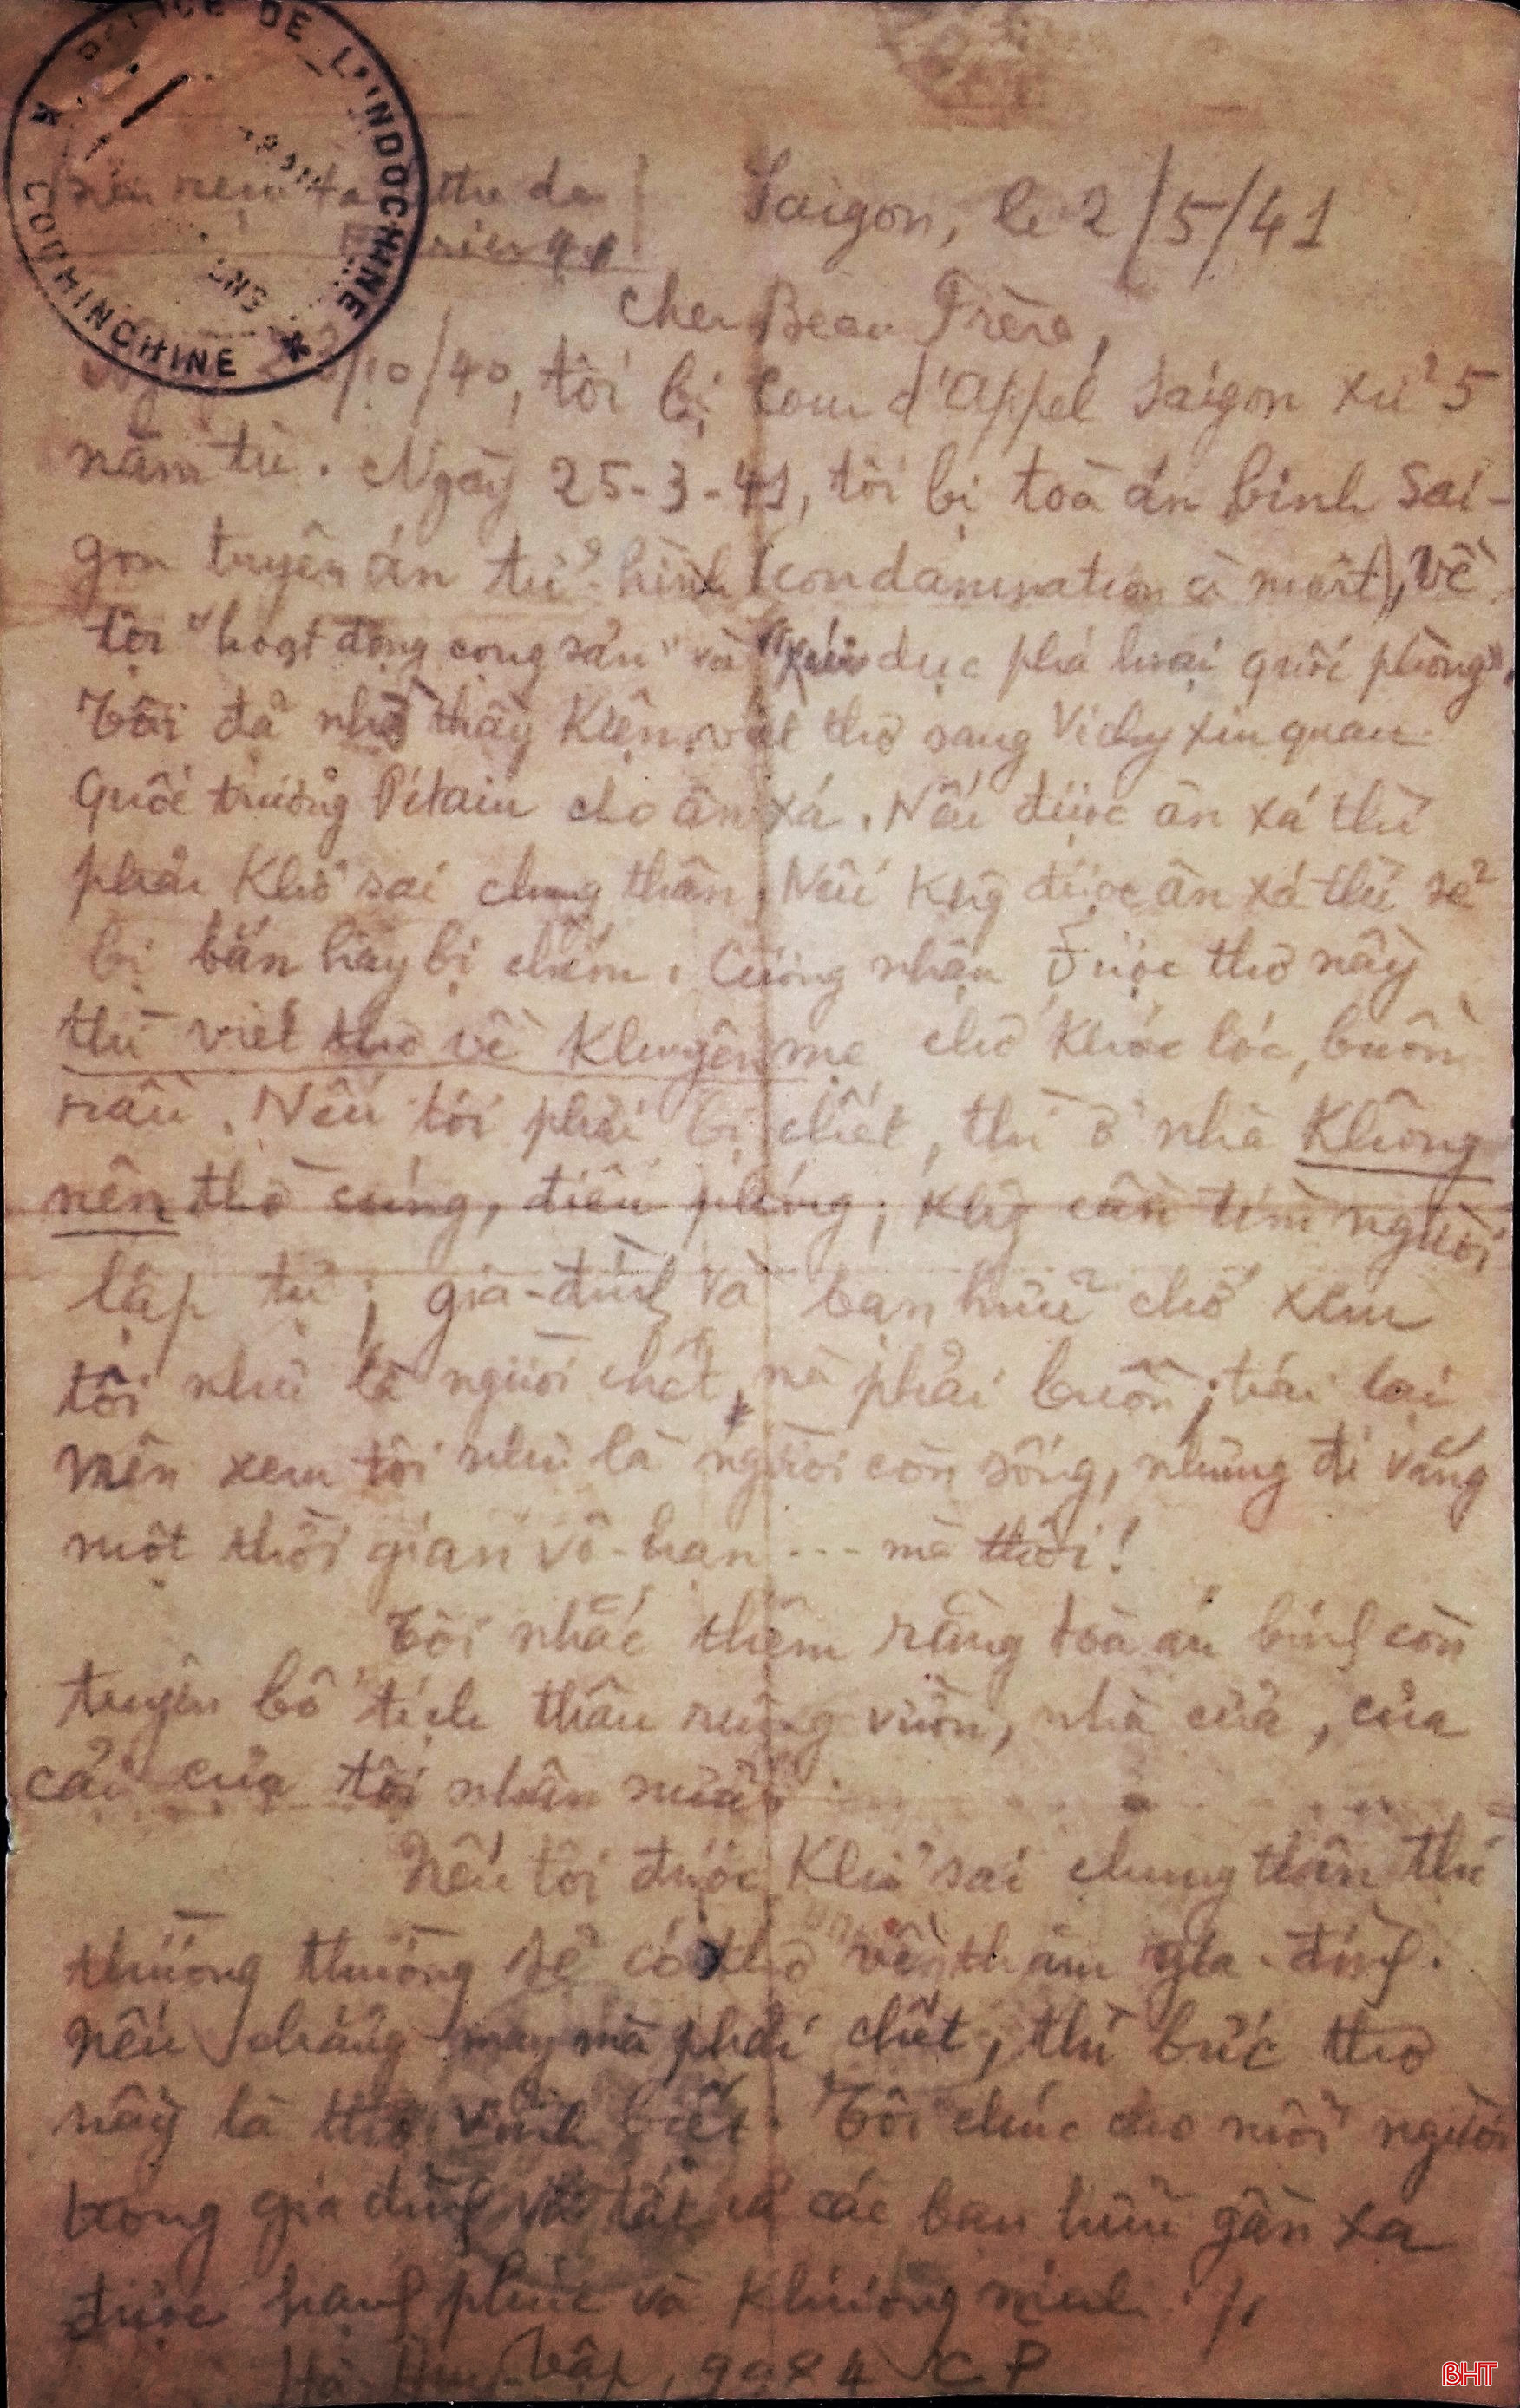 POLICE DE L'INDOCHINE
COCHINCHINE
thư
Saigon, le 2/5/41
Cher Beau Frère,
/10/40, tôi bị Cour d'Appel Saigon xử 5
năm tù. Ngày 25-3-41, tôi bị toà án binh Sai-
gon truyên án tử-hình (condamnation à mort), về
tội "hoạt động cộng sản" và dục phá hoại quốc phòng".
Tôi đã nhờ thầy Kiện viết thơ sang Vichy xin quan
Quốc trưởng Pétain cho ân xá. Nếu được ân xá thì
phải khổ sai chung thân. Nếu Khg được ân xá thì sẽ
bị bắn hay bị chém. Cường nhận được thơ nầy
thì viết thơ về khuyên mẹ chớ khóc lóc, buồn
rầu. Nếu tôi phải bị chết, thì ở nhà không
nên thờ cúng, điếu phúng; khg cần tìm người
lập tự; gia-đình và bạn hữu chớ xem
tôi như là người chết mà phải buồn; trái lại
nên xem tôi như là người còn sống, nhưng đi vắng
một thời gian vô-hạn --- mà thôi!
Tôi nhắc thêm rằng toà án binh còn
tuyên bố tịch thâu ruộng vườn, nhà cửa, của
cải của tôi nhân nữa.
Nếu tôi được Khổ sai chung thân thì
thường thường sẽ có thơ về thăm gia-đình.
Nếu chẳng may mà phải chết, thì bức thơ
nầy là thơ vĩnh biệt. Tôi chúc cho mỗi người
trong gia đình và tất cả các bạn hữu gần xa
được hạnh phúc và Khương ninh ./.
Hà Huy-Tập, 9084 CP
BHT